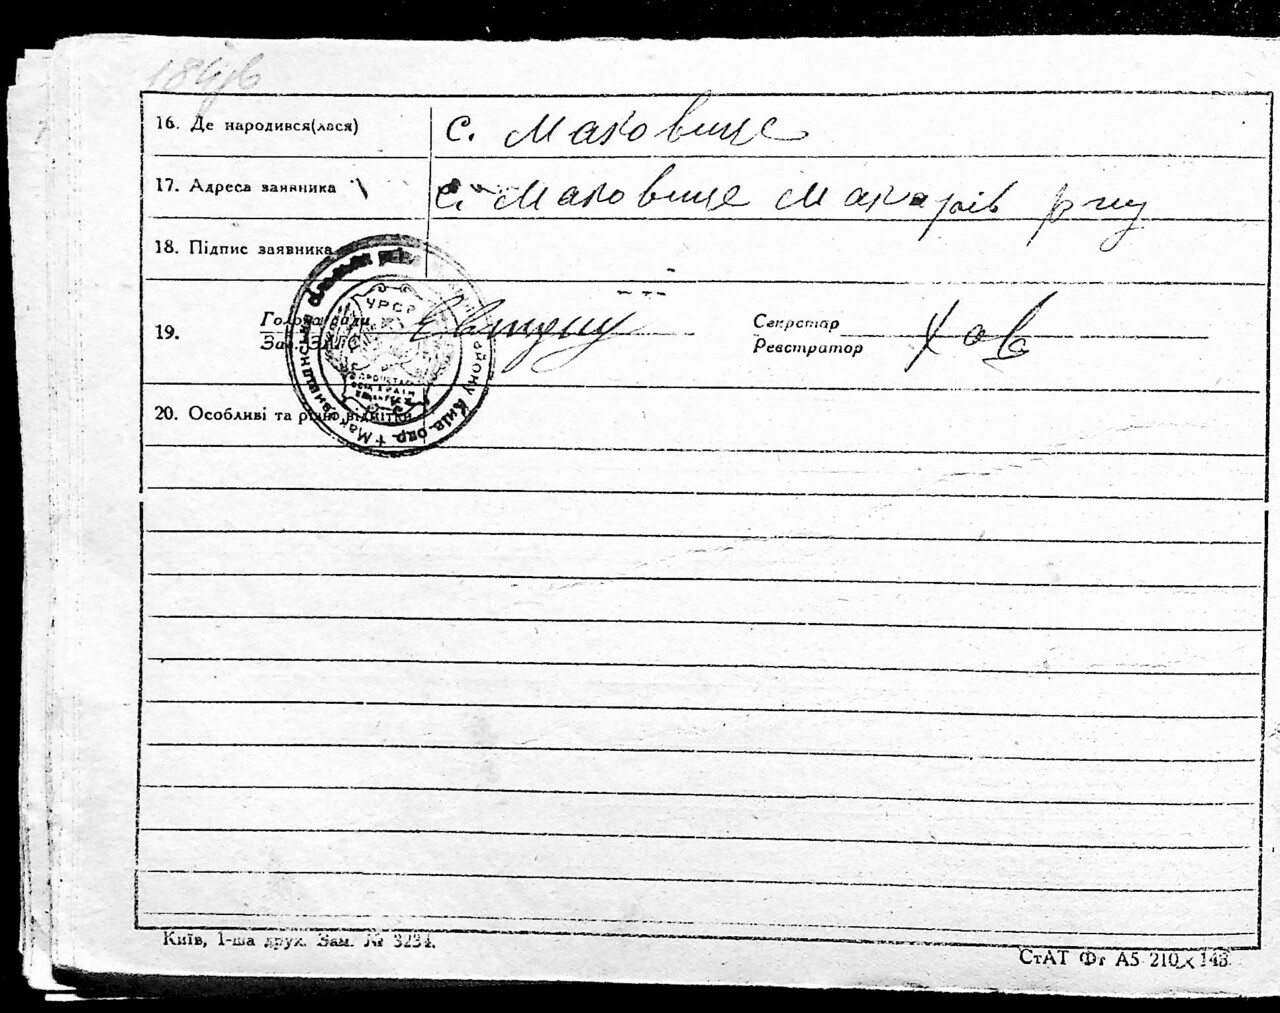 184зв
16. Де народився(лася) с. Маковище
17. Адреса заявника с. Маковище Макарів р-ну
18. Підпис заявника
УРСР
19. Голова ради
Зав. ЗАГС
Секретар
Реєстратор
20. Особливі та різні відмітки
Київ, 1-ша друх. Зам. № 3234.
СтАТ Фт А5 210 х 148